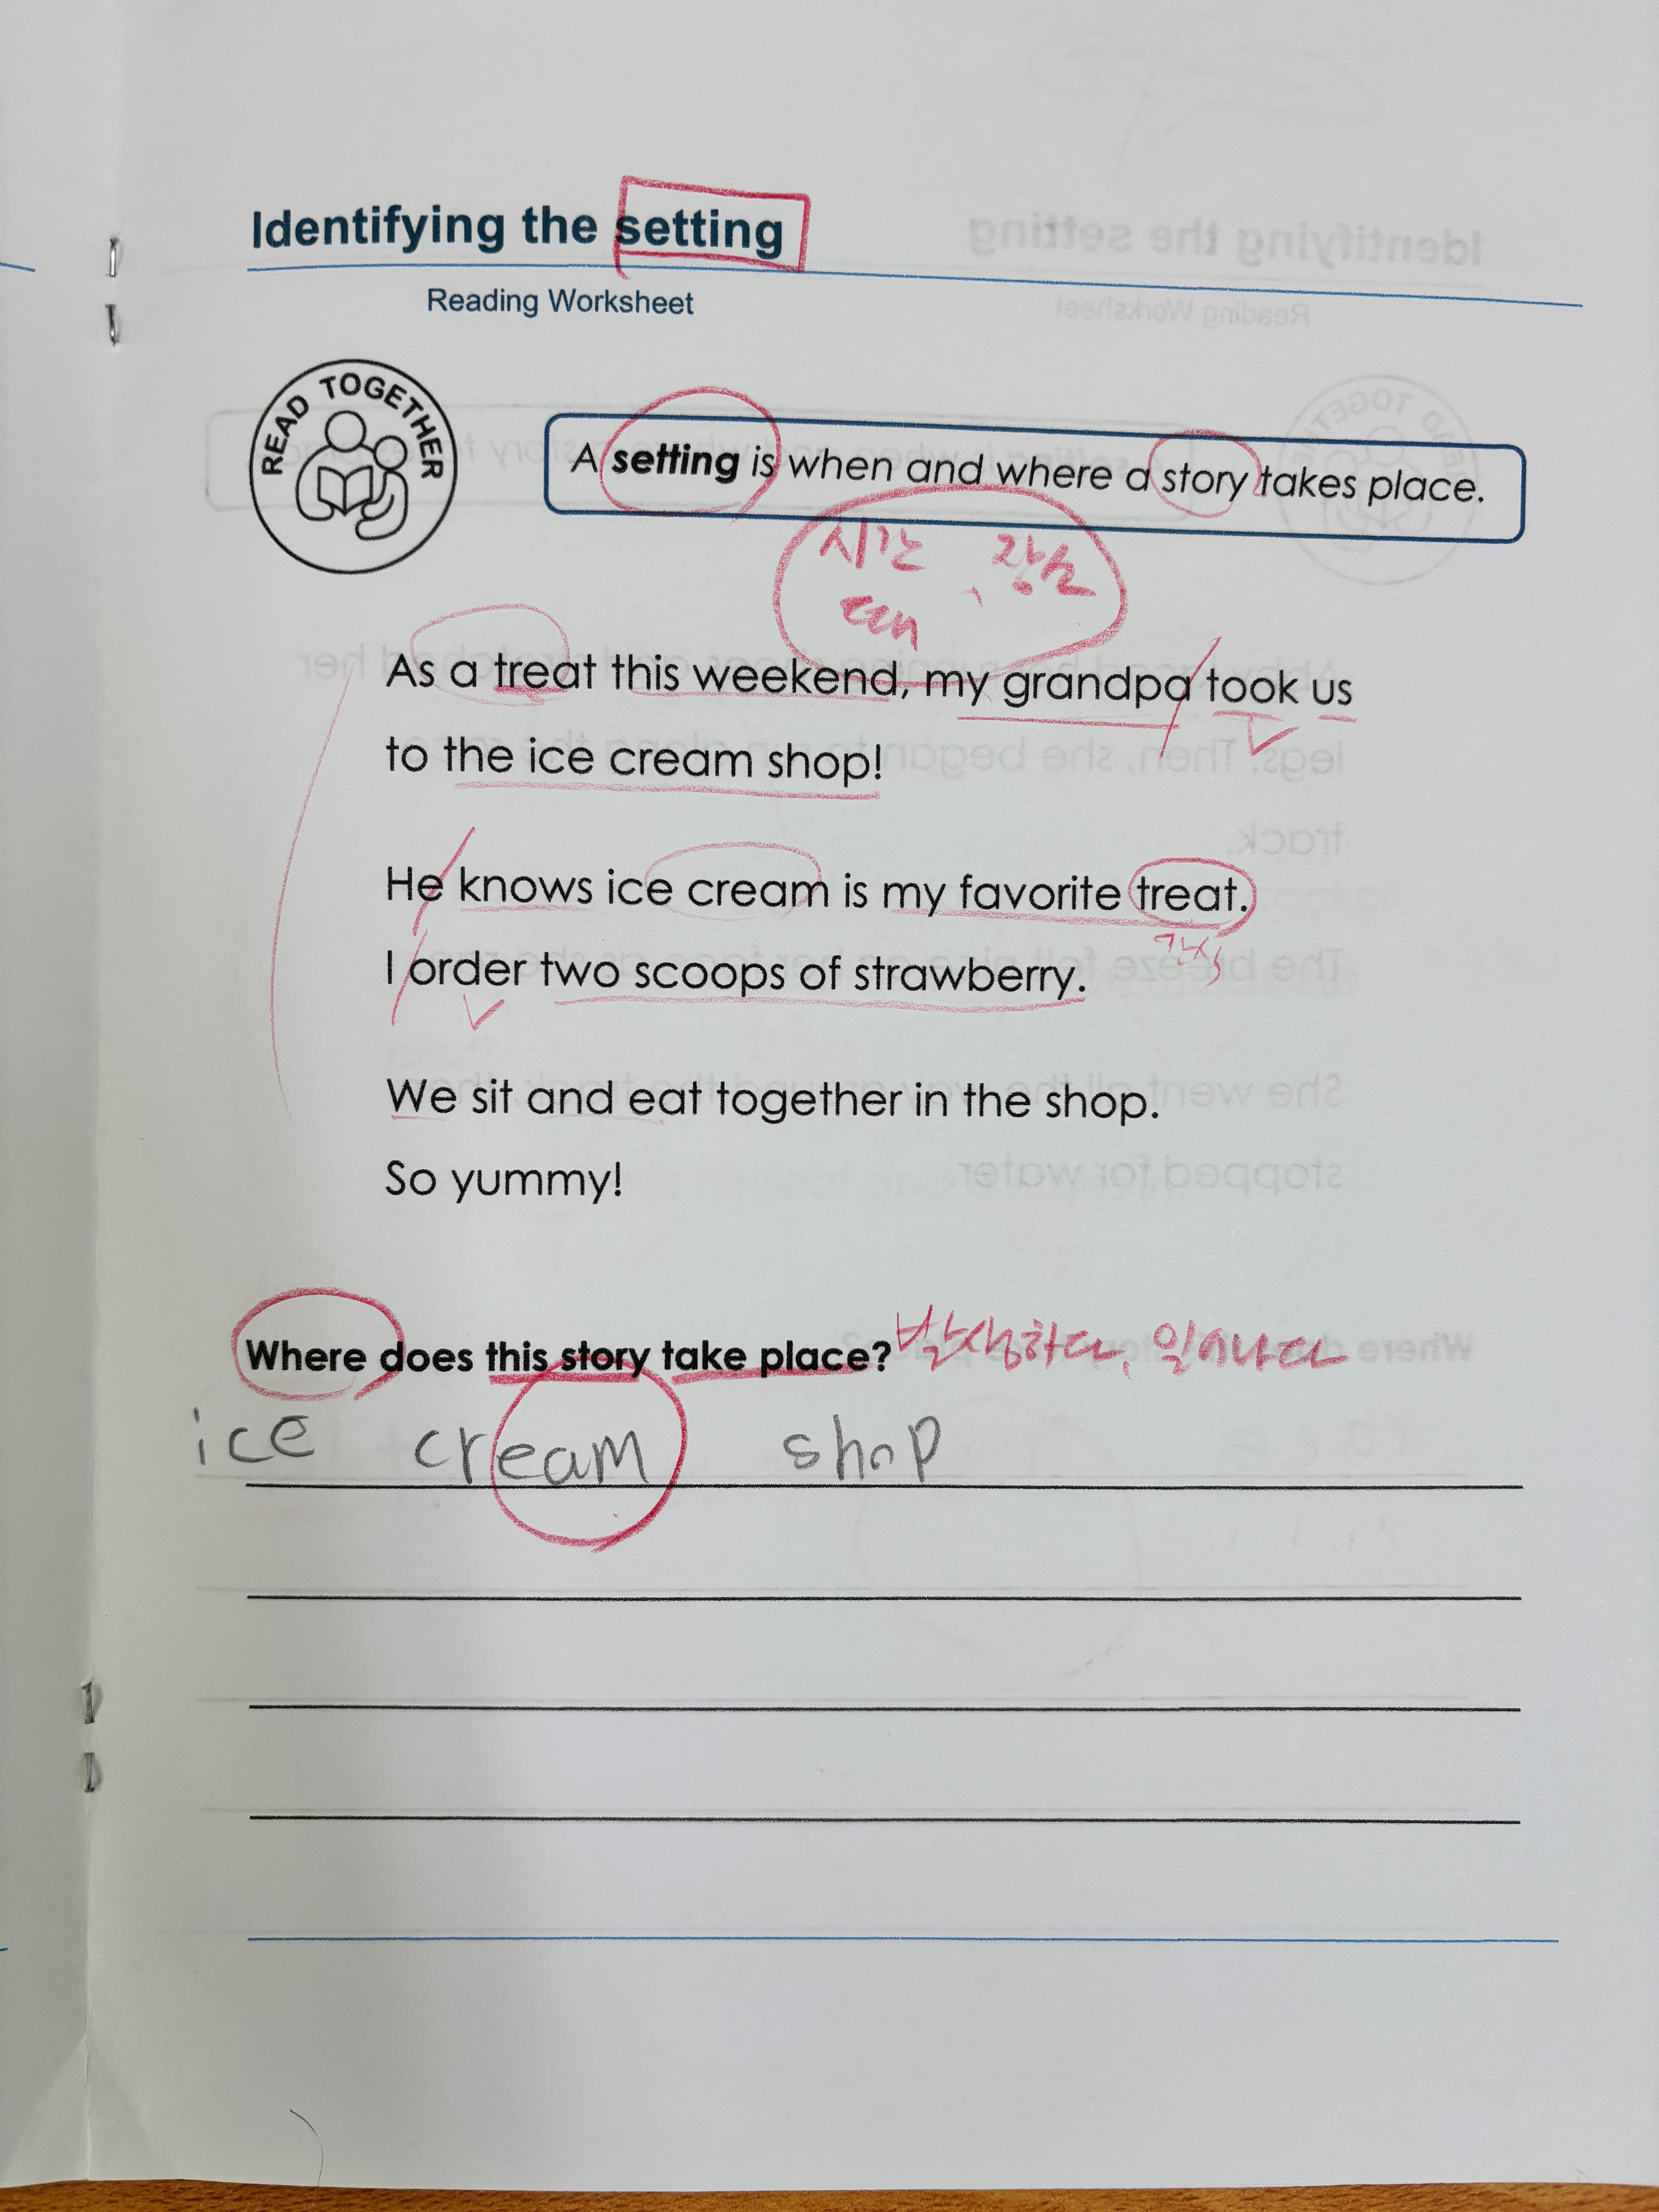 Identifying the setting
Reading Worksheet
READ TOGETHER
A setting is when and where a story takes place.
시간, 장소
As a treat this weekend, my grandpa took us
to the ice cream shop!
He knows ice cream is my favorite treat.
간식
I order two scoops of strawberry.
We sit and eat together in the shop.
So yummy!
Where does this story take place? 발생하다, 일어나다
ice cream shop